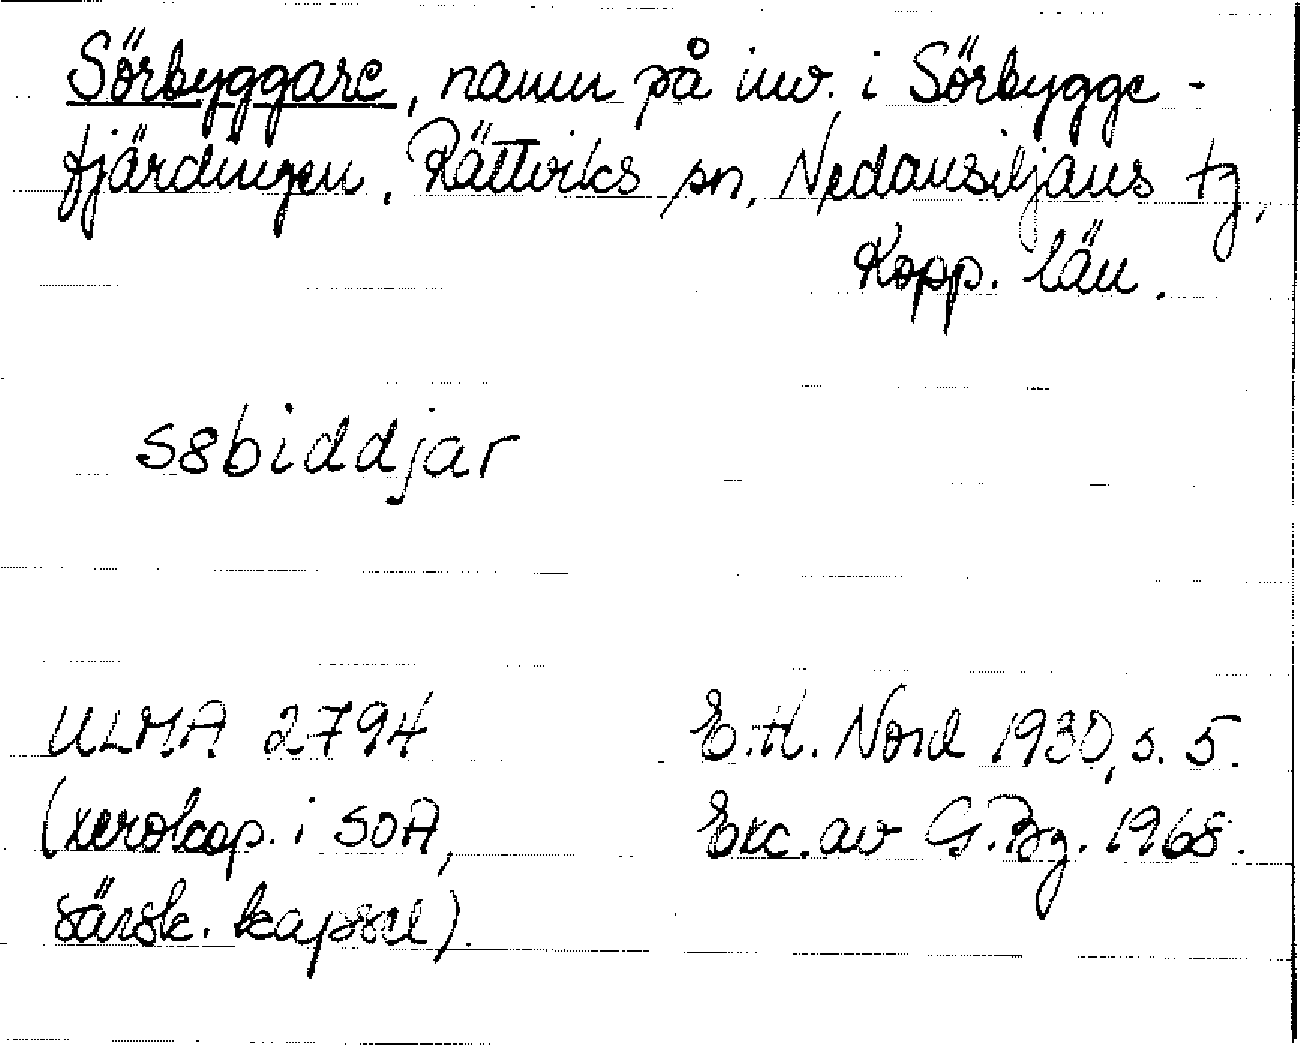 Sörbyggare, namn på inv. i Sörbygge-
fjärdingen, Rättviks sn, Nedansiljans tg,
Kopp. län.
s8biddjar
ULMA 2794
(xerokop. i SOA,
särsk. kapsel).
E.H. Nord 1930, s. 5.
Exc. av G.Bg. 1968.